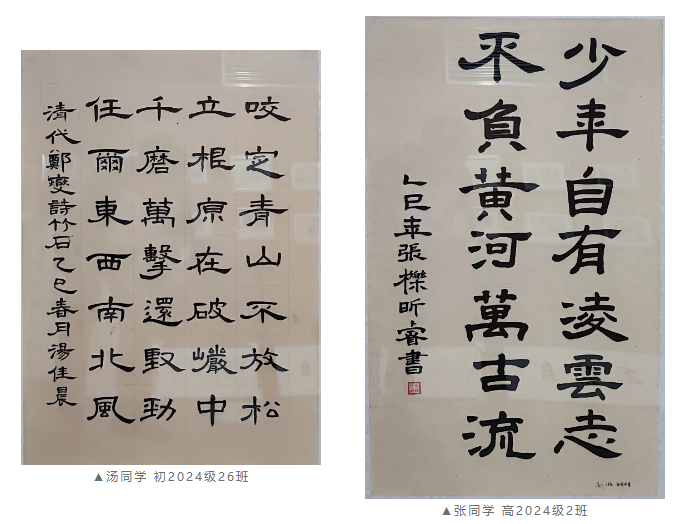 咬定青山不放松
立根原在破巖中
千磨萬擊還堅勁
任爾東西南北風
清代鄭燮詩竹石乙巳春月湯佳晨
▲汤同学 初2024级26班
少年自有凌雲志
不負黃河萬古流
乙巳年張櫟昕睿書
▲张同学 高2024级2班